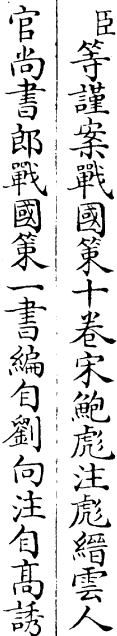 臣等謹案戰國策十卷宋鮑彪注彪縉雲人
官尚書郎戰國策一書編自劉向注自高誘